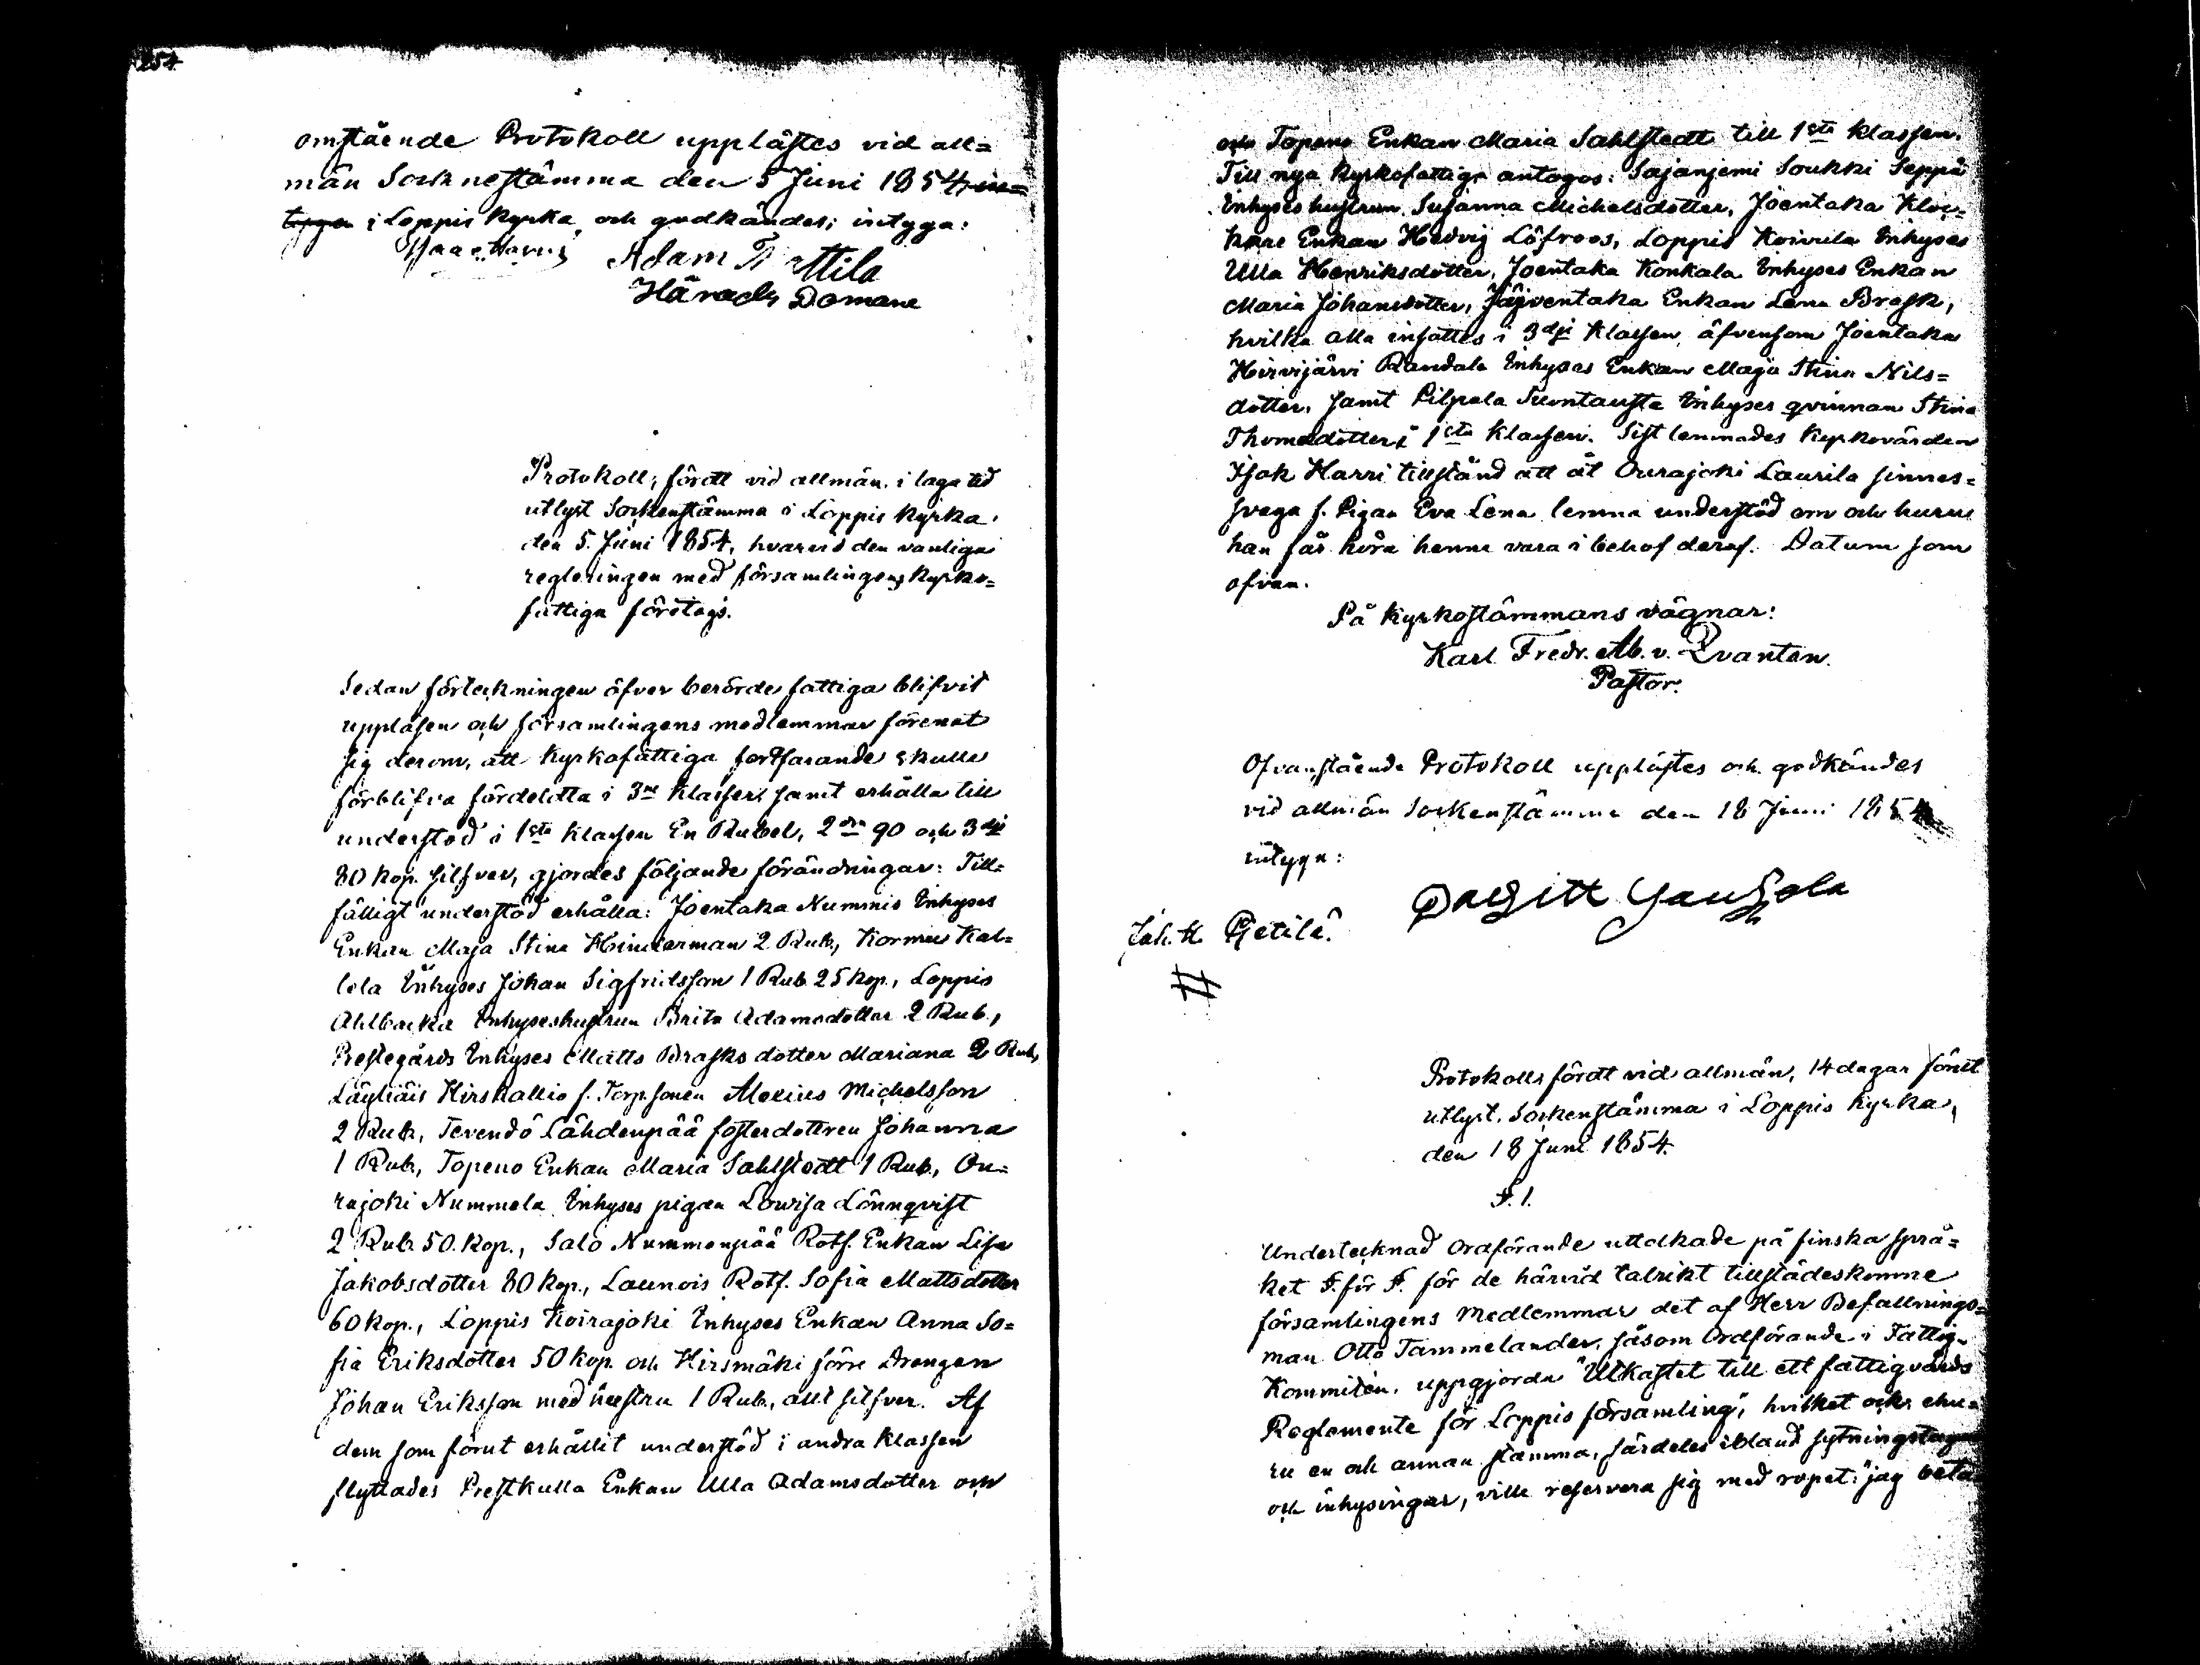 254
omstående Protokoll upplästes vid all=
män Socknestämma den 5 Juni 1854, in=
tyga i Loppis kyrka, och godkändes; intyga:
Isaac Harri Adam Tattila
Härads Domare
Protokoll, fördt vid allmän i laga tid
utlyst Sockenstämma i Loppis kyrka
den 5. Juni 1854, hvarvid den vanliga
regleringen med församlingens kyrko=
fattiga företogs.
Sedan förteckningen öfver berörde fattiga blifvit
uppläsen och församlingens medlemmar förenat
sig derom, att kyrkofattiga fortfarande skulle
förblifva fördelta i 3ne klasser samt erhålla till
understöd i 1sta klassen En Rubel, 2dra 90 och 3dje
80 kop. silfver, gjordes följande förändringar: Till=
fälligt understöd erhålla: Joentaka Nummis Inhyses
Enkan Maja Stina Hinderman 2 Rub., Kormu Kal=
lela Inhyses Johan Sigfridsson 1 Rub. 25 kop., Loppis
Ahlbacka Inhyseshustrun Brita Adamsdotter 2 Rub.,
Prestegårds Inhyses Matts Brasks dotter Mariana 2 Rub.,
Läyliäis Hirskallio f. Torpsonen Alexius Michelsson
2 Rub., Tevendö Lähdenpää fosterdottren Johanna
1 Rub., Topeno Enkan Maria Sahlstedt 1 Rub., Ou=
rajoki Nummela Inhyses pigan Lowisa Lönnqvist
2 Rub. 50. kop., Salo Nummenpää Rotf. Enkan Lisa
Jakobsdotter 80 kop., Launois Rotf. Sofia Mattsdotter
60 kop., Loppis Koirajoki Inhyses Enkan Anna So=
fia Eriksdotter 50 kop. och Hirsmäki förre Drengen
Johan Eriksson med hustru 1 Rub., allt silfver. Af
dem som förut erhållit understöd i andra klassen
flyttades Prestkulla Enkan Ulla Adamsdotter och
och Topeno Enkan Maria Sahlstedt till 1sta klassen.
Till nya kyrkofattiga antogos: Sajanjemi Soukki Seppä
Inhyses hustrun Susanna Michelsdotter, Joentaka Kloc=
kare Enkan Hedvig Löfroos, Loppis Koivula Inhyses
Ulla Henriksdotter, Joentaka Konkala Inhyses Enkan
Maria Johansdotter, Järventaka Enkan Lena Brask,
hvilka alla insattes i 3dje klassen, äfvensom Joentaka
Hirvijärvi Randala Inhyses Enkan Maja Stina Nils=
dotter, samt Pilpala Suontausta Inhyses qvinnan Stina
Thomasdotter i 1sta klassen. Sist lemnades Kyrkovärden
Isak Harri tillstånd att åt Ourajoki Laurila sinnes=
svaga f. Pigan Eva Lena lemna understöd om och huru
han får höra henne vara i behof deraf. Datum som
ofvan.
På kyrkostämmans vägnar:
Karl Fredr. Ab. v. Qvanten.
Pastor.
Ofvanstående Protokoll upplästes och godkändes
vid allmän Sockenstämma den 18 Juni 1854
intyga:
Joh. H. Pjetilä.
Protokoll, fördt vid allmän, 14 dagar förut
utlyst, Sockenstämma i Loppis kyrka,
den 18 Juni 1854.
§. 1.
Undertecknad Ordförande uttolkade på finska språ=
ket §. för §. för de härvid talrikt tillstädeskomne
församlingens Medlemmar det af Herr Befallnings=
man Otto Tammelander, såsom Ordförande i Fattig=
Kommitén, uppgjorda "Utkastet till ett fattigvårds
Reglemente för Loppis församling", hvilket ock, ehu=
ru en och annan stämma, särdeles ibland sytningstagare
och inhysingar, ville reservera sig med ropet: "jag beta